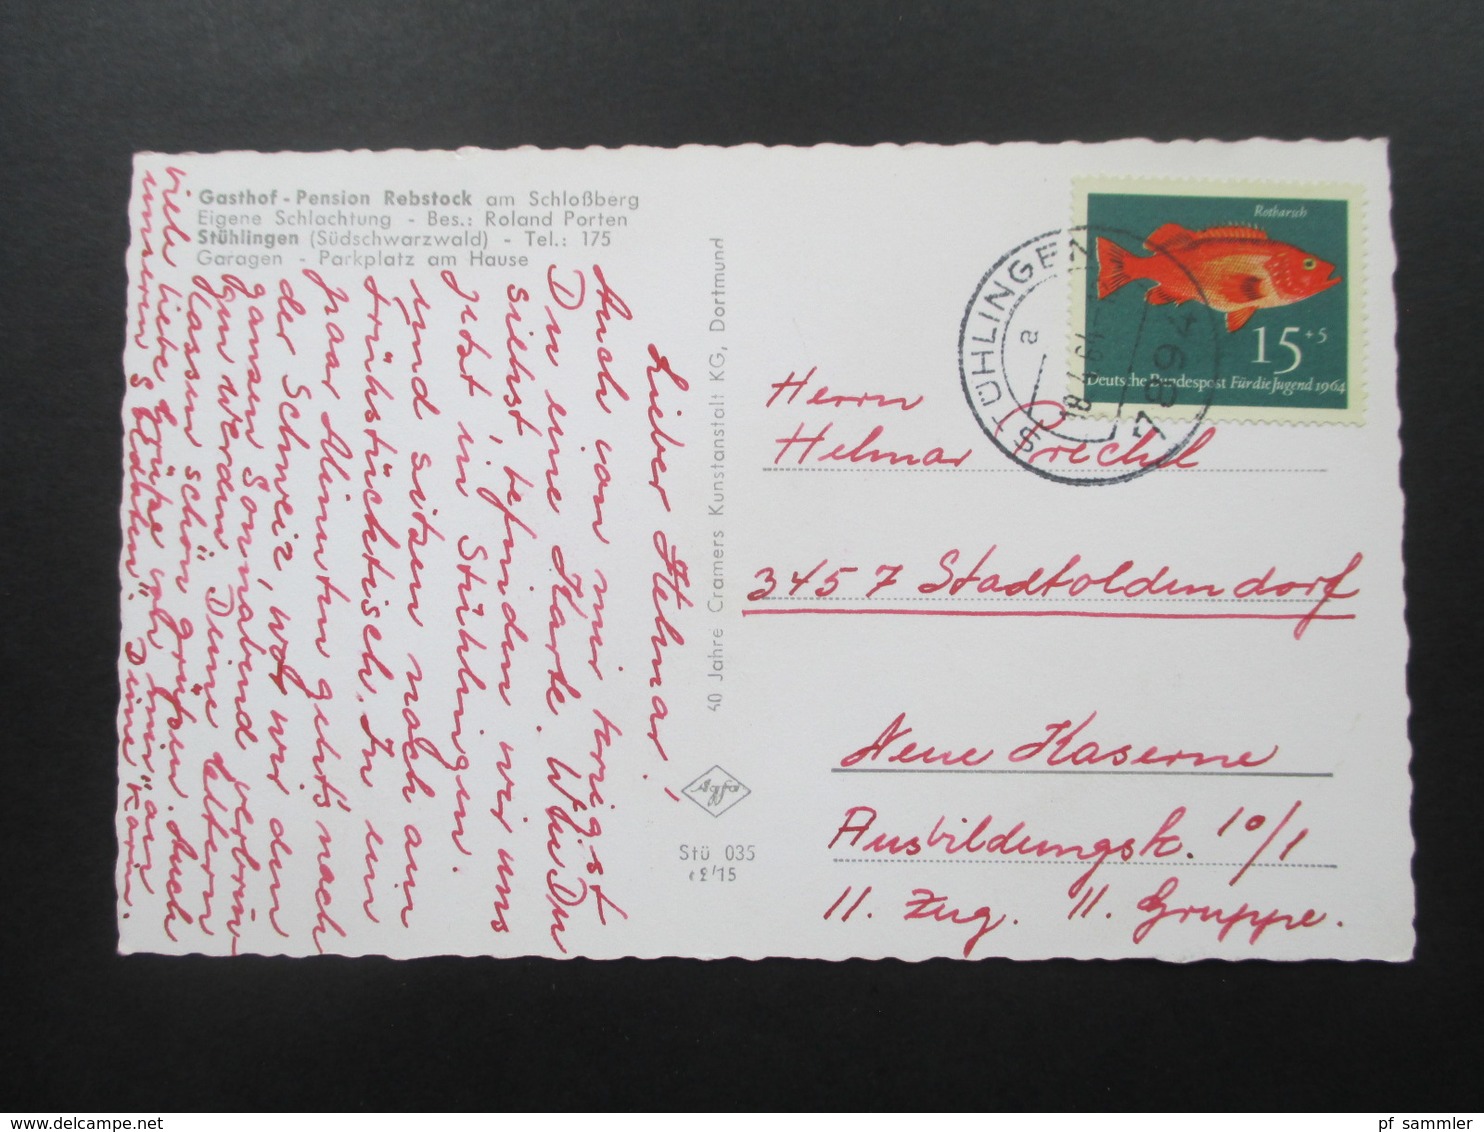 Gasthof - Pension Rebstock am Schloßberg
Eigene Schlachtung - Bes.: Roland Porten
Stühlingen (Südschwarzwald) - Tel.: 175
Garagen - Parkplatz am Hause
Lieber Helmar,
Auch von mir kriegst
Du eine Karte. Wie Du
siehst, befinden wir uns
jetzt in Stühlingen.
und sitzen noch am
Frühstücktisch. In ein
paar Minuten geht's nach
der Schweiz, wo wir den
ganzen Sonnabend verbrin
gen werden. Deine Eltern
lassen schön grüßen. Auch
viele liebe Grüße von mir an
unseren Soldaten. Deine Karin.
40 Jahre Cramers Kunstanstalt KG, Dortmund
Agfa
Stü 035
Rotbarsch
15+5
Deutsche Bundespost Für die Jugend 1964
STÜHLINGEN
a
7894
Herrn
Helmar Prechtl
3457 Stadtoldendorf
Neue Kaserne
Ausbildungsk. 10/1
II. Zug. II. Gruppe.
pf_sammler
www.delcampe.net